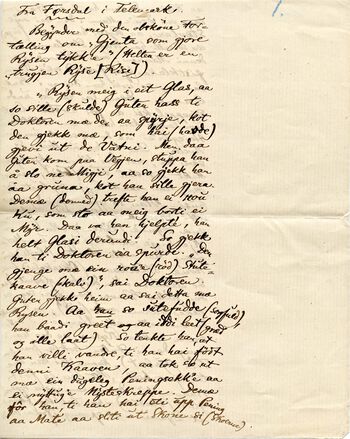 1.
Fra Fyrsdal i Telemark.
Begynder med den obskøne For-
tælling om "Gjenta som gjore
Rysen tykke" (Helten er en
truggen Ryse [Risi])
"Rysen meig i eit Glas, aa
so sille (skulde) Guten hass te
Doktoren mæ dæ aa spyrje, kot
den gjekk mæ, som hai (hadde)
gjevi ut de Vatni. Men daa
Guten kom paa Vegen, stuppa han
i slo ne Migje, aa so gjekk han
aa gruna, kot han sille gjera.
Demæ (dermed) trefte han ei
Ku, som sto aa meig borti ei
Myr. Daa va han hjelpte, han
helt Glasi derundi. So gjekk
han ti Doktoren aa spurde. "Den
gjenge mæ ein roue (rød)
kaave (kalv), sai Doktoren.
Guten gjekk heim aa sai detta mæ
Rysen. Aa han so
han baadi greet og aa leet (græd
og ille laat) So tenkte han, at
han ville vandre, te han hai født
denni Kaaven, aa tok so ut
mæ ein dugeleg Peningsekk aa
ei nyttige Nisteskreppe. Demæ
for han, te han hai oti opp Pening
aa Mate aa slite ut Skone si (Skoene)